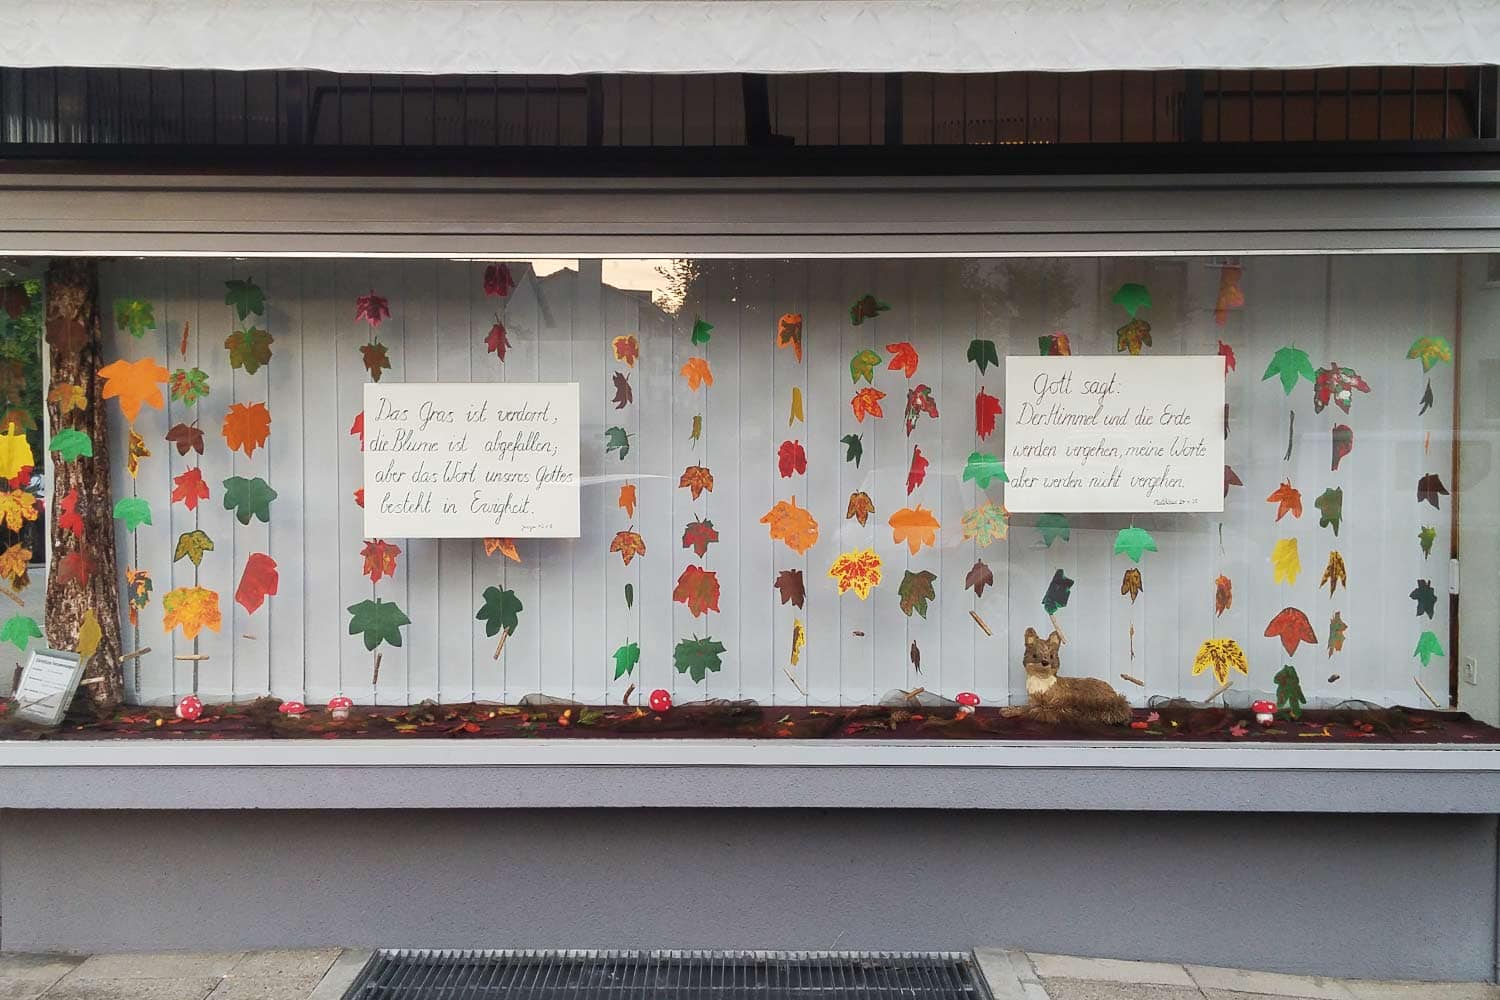 Das Gras ist verdorrt,
die Blume ist abgefallen;
aber das Wort unseres Gottes
besteht in Ewigkeit.
Gott sagt:
Der Himmel und die Erde
werden vergehen, meine Worte
aber werden nicht vergehen.